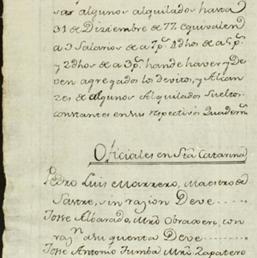 sar algunos alquilados hasta
31 de Diziembre de 77 equivalen
a 3 Salarios de a 7 p.s 2 dhos de a 5 p.s
y 2 dhos de a 3 p.s han de haver y de
ven agregados los devitos, y Alcan
zes de algunos Alquilados sueltos
constantes en su respectivo Quadern
Oficiales en Sta Catarina
Pedro Luis Marrero, Maestro de
Sastre, su razon Deve
Josse Alvarado, Mro Obraxen, con
raz.n a su quenta Deve
Josse Antonio Tumba Mro Zapatero